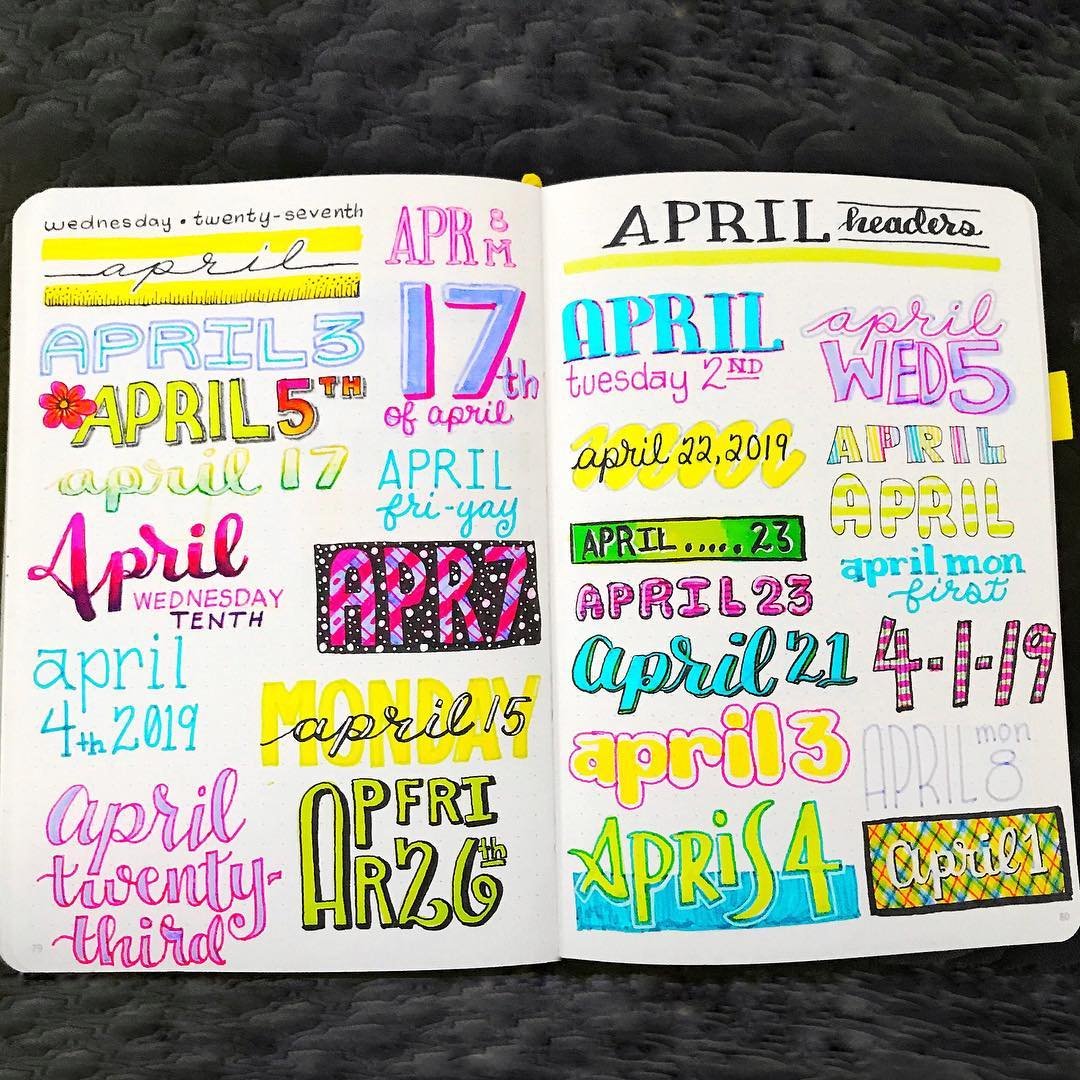 wednesday • twenty-seventh
april
APRIL 3
APRIL 5TH
april 17
April
WEDNESDAY
TENTH
april
4th 2019
april
twenty-
third
79
APR 8
M
17th
of april
APRIL
fri-yay
APR 7
MONDAY
april 15
AP FRI
AR 26th
APRIL headers
APRIL
tuesday 2ND
april 22, 2019
APRIL.....23
APRIL 23
april 21
april 3
APRiS 4
april
WED 5
APRIL
APRIL
april mon
first
4-1-19
APRIL mon
8
April 1
80